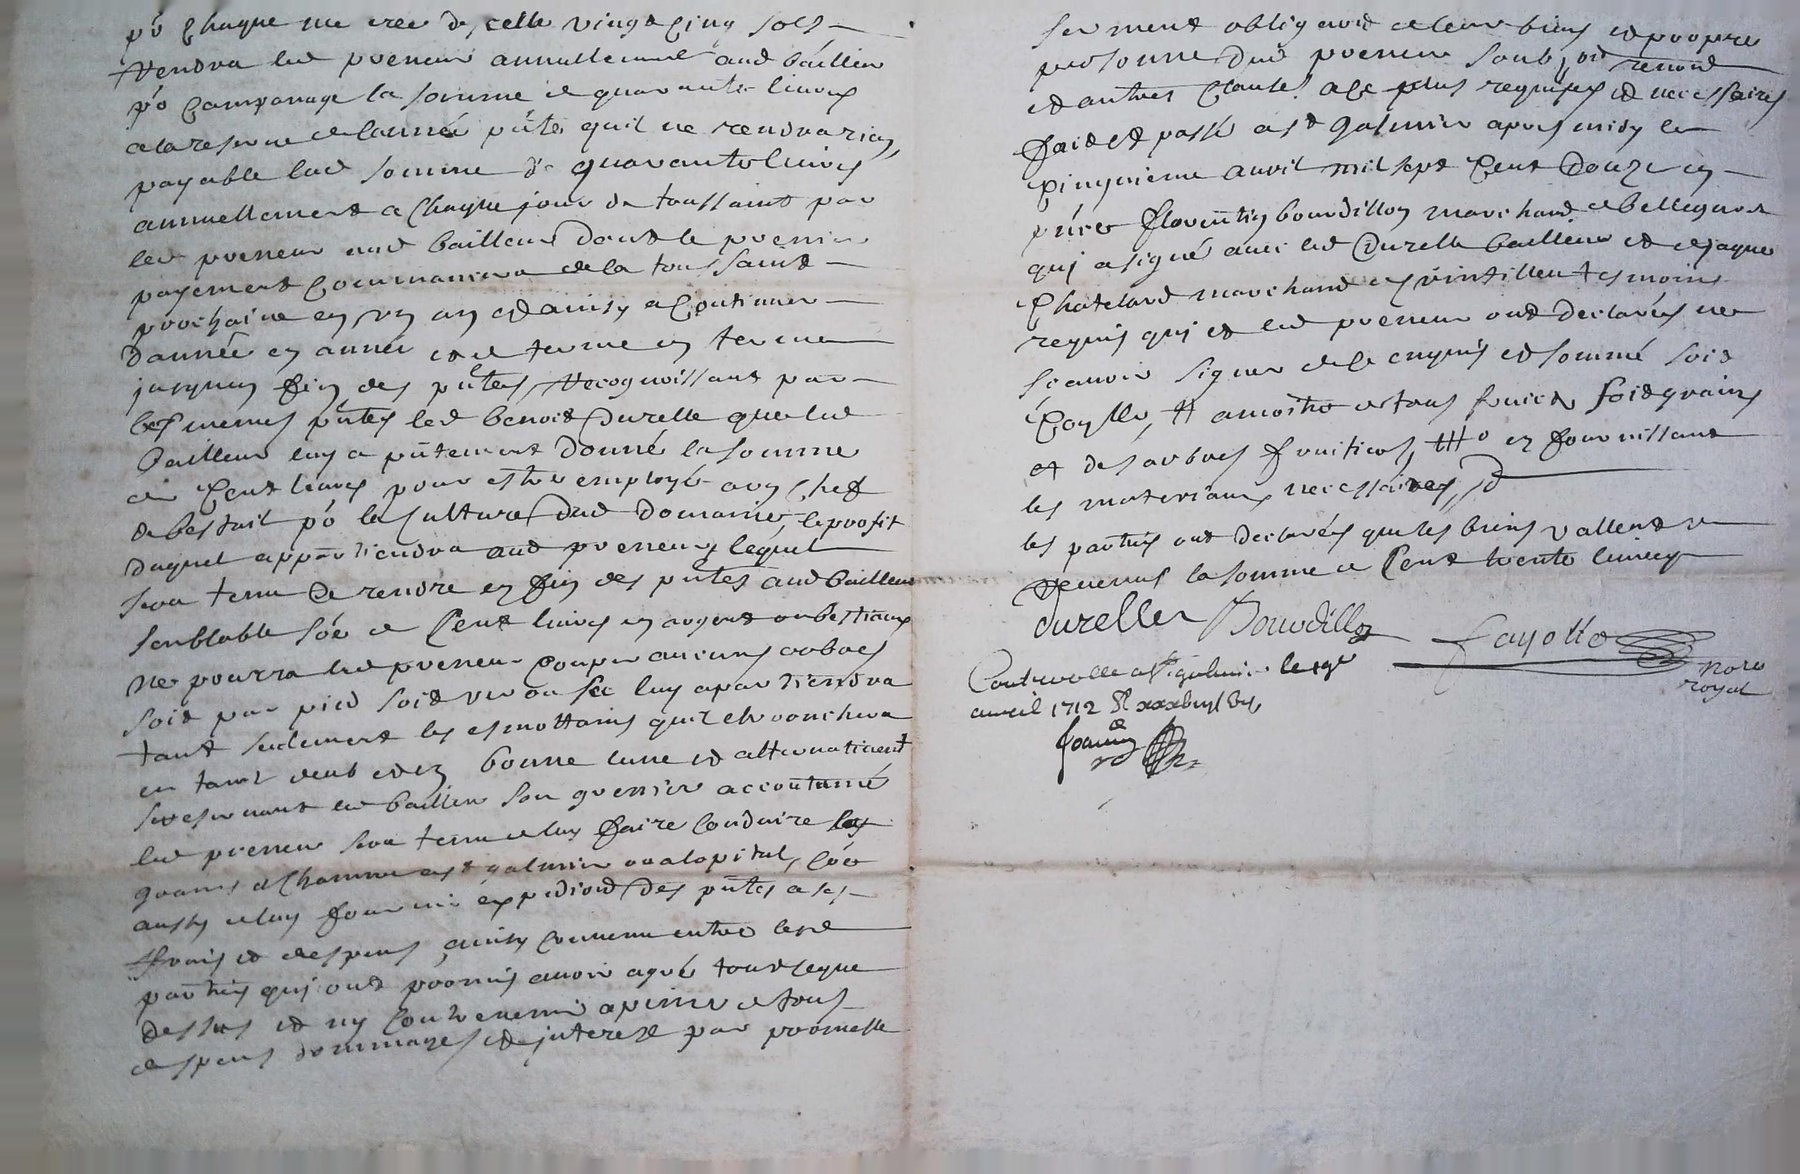 po chaque mere d'icelle vingt cinq sols
Rendra led preneur annuellement aud bailleur
po campanage la somme de quarante livres
a la reserve de lannée pntes quil ne rendra rien
payable lad somme de quarante livres
annuellement a chaque jour de toussaint par
led preneur aud bailleur dont le premier
payement commancera de la toussaint
prochaine en un an et ainsy a continuer
dannée en année et de terme en terme
jusques fin des pntes, Recognoissant par
ces mesmes pntes led benoit Durelle que led
bailleur luy a pntement donné la somme
de cent livres pour estre employé au chef
de bestail po la culture dud domaine, le profit
duquel appartiendra aud preneur lequel
sera tenu de rendre en fin des pntes aud bailleur
semblable soe de cent livres en argent ou bestiaux
ne pourra led preneur couper aucuns arbres
soit par pied soit ver ou sec luy apartiendra
tant seulement les esmottains quil ebranchera
en tamt deub et en bonne lune et alternativent
reservant led bailleur son grenier accoutumé
led preneur sera tenu de luy faire conduire les
grains et chanvre a st galmier ou a lopital, coe
aussy de luy fournir expediond des pntes a ses
frais et despens, ainsy convenu entre lesd
parties qui ont promis avoir agreé tout ce que
dessus et ny contrevenir a peine de tous
despens dommages et dinterest par promesse
serment obligaoñ de leur biens et propre
personne dud preneur soub, on renond
et autres clauses a ce plus requises et necessaires
fait et passé a st galmier apres midy le
cinquieme avril mil sept cent douze en
pnce florentin bourdillon marchand de bellegarde
qui a signé avec led Durelle bailleur et de jaque
Chatelard marchand en vintilleu tesmoins
requis qui et led preneur ont declarés ne
scavoir signer de ce enquis et sommé soit
coylle, # a moitie de tous fruicts soit grains
et des arbres fruitiers, ### en fournissant
les materiaux necessaires, d
les parties ont declarés que les biens vallent de
Revenus la somme de cent trente livres
Durelle Bourdillon fayolle
Norè
royal
Controolle a St galmier le 19e
avril 1712